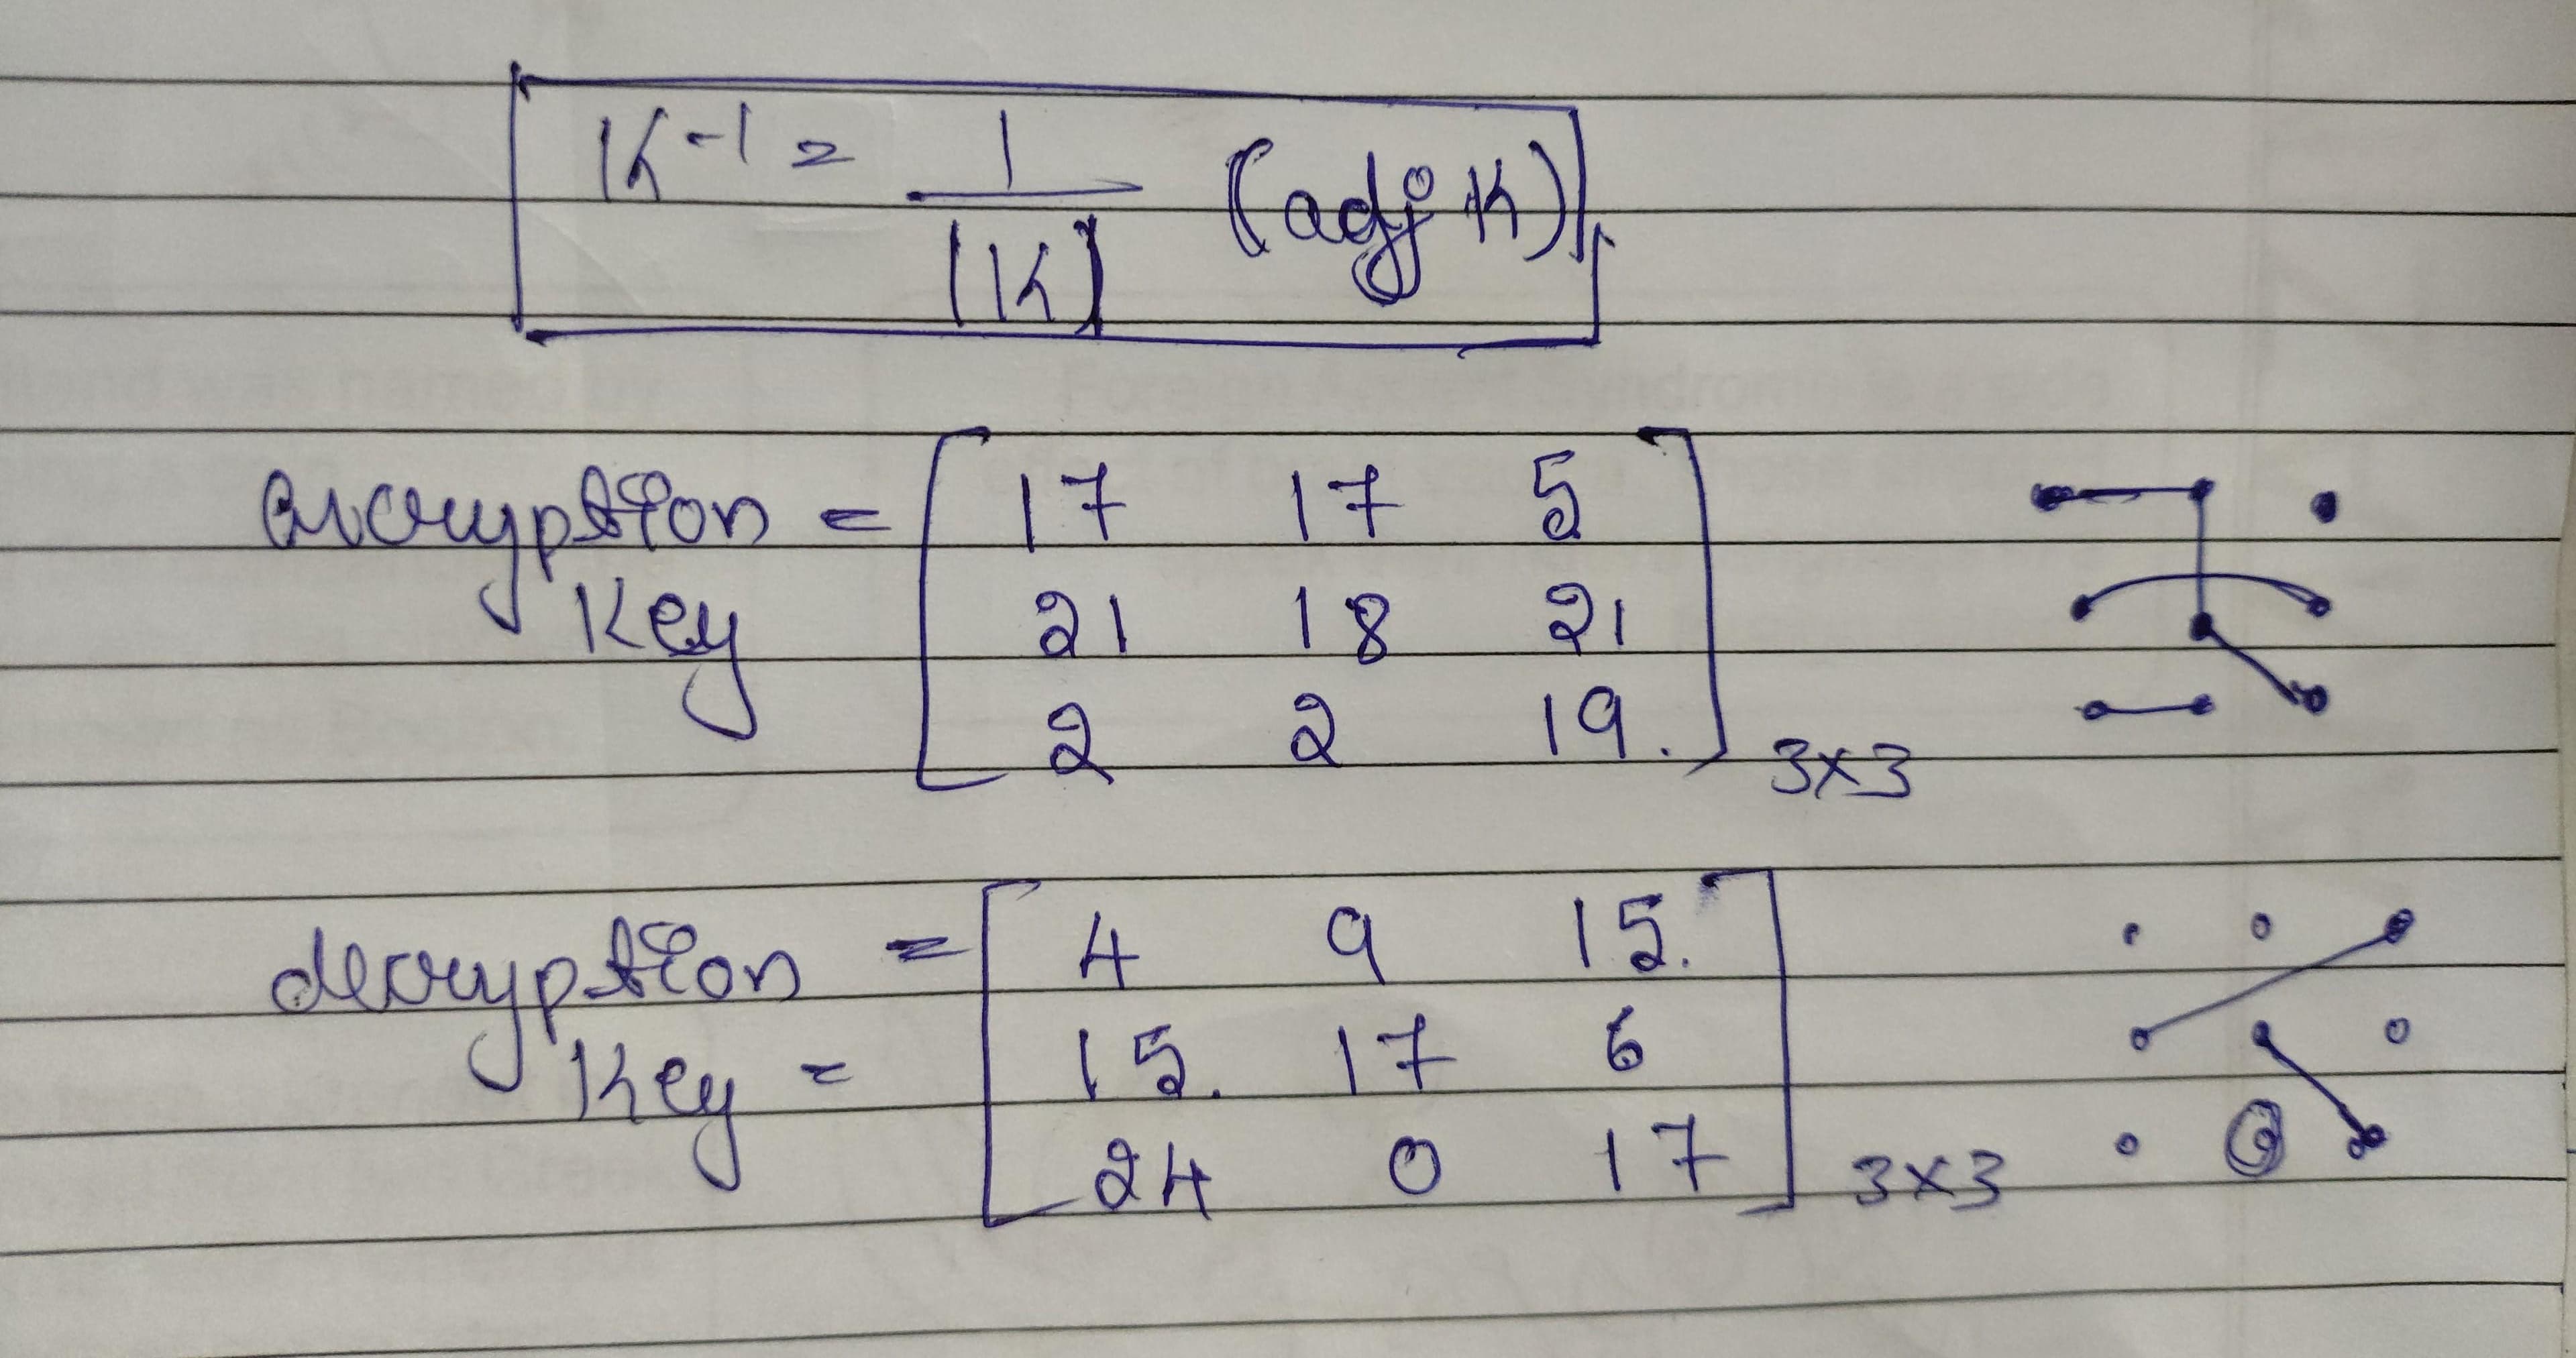 K⁻¹ = 1/|K| (adj K)
encryption Key = [ 17 17 5
21 18 21
2 2 19. ] 3×3
decryption = Key = [ 4 9 15.
15. 17 6
24 0 17 ] 3×3